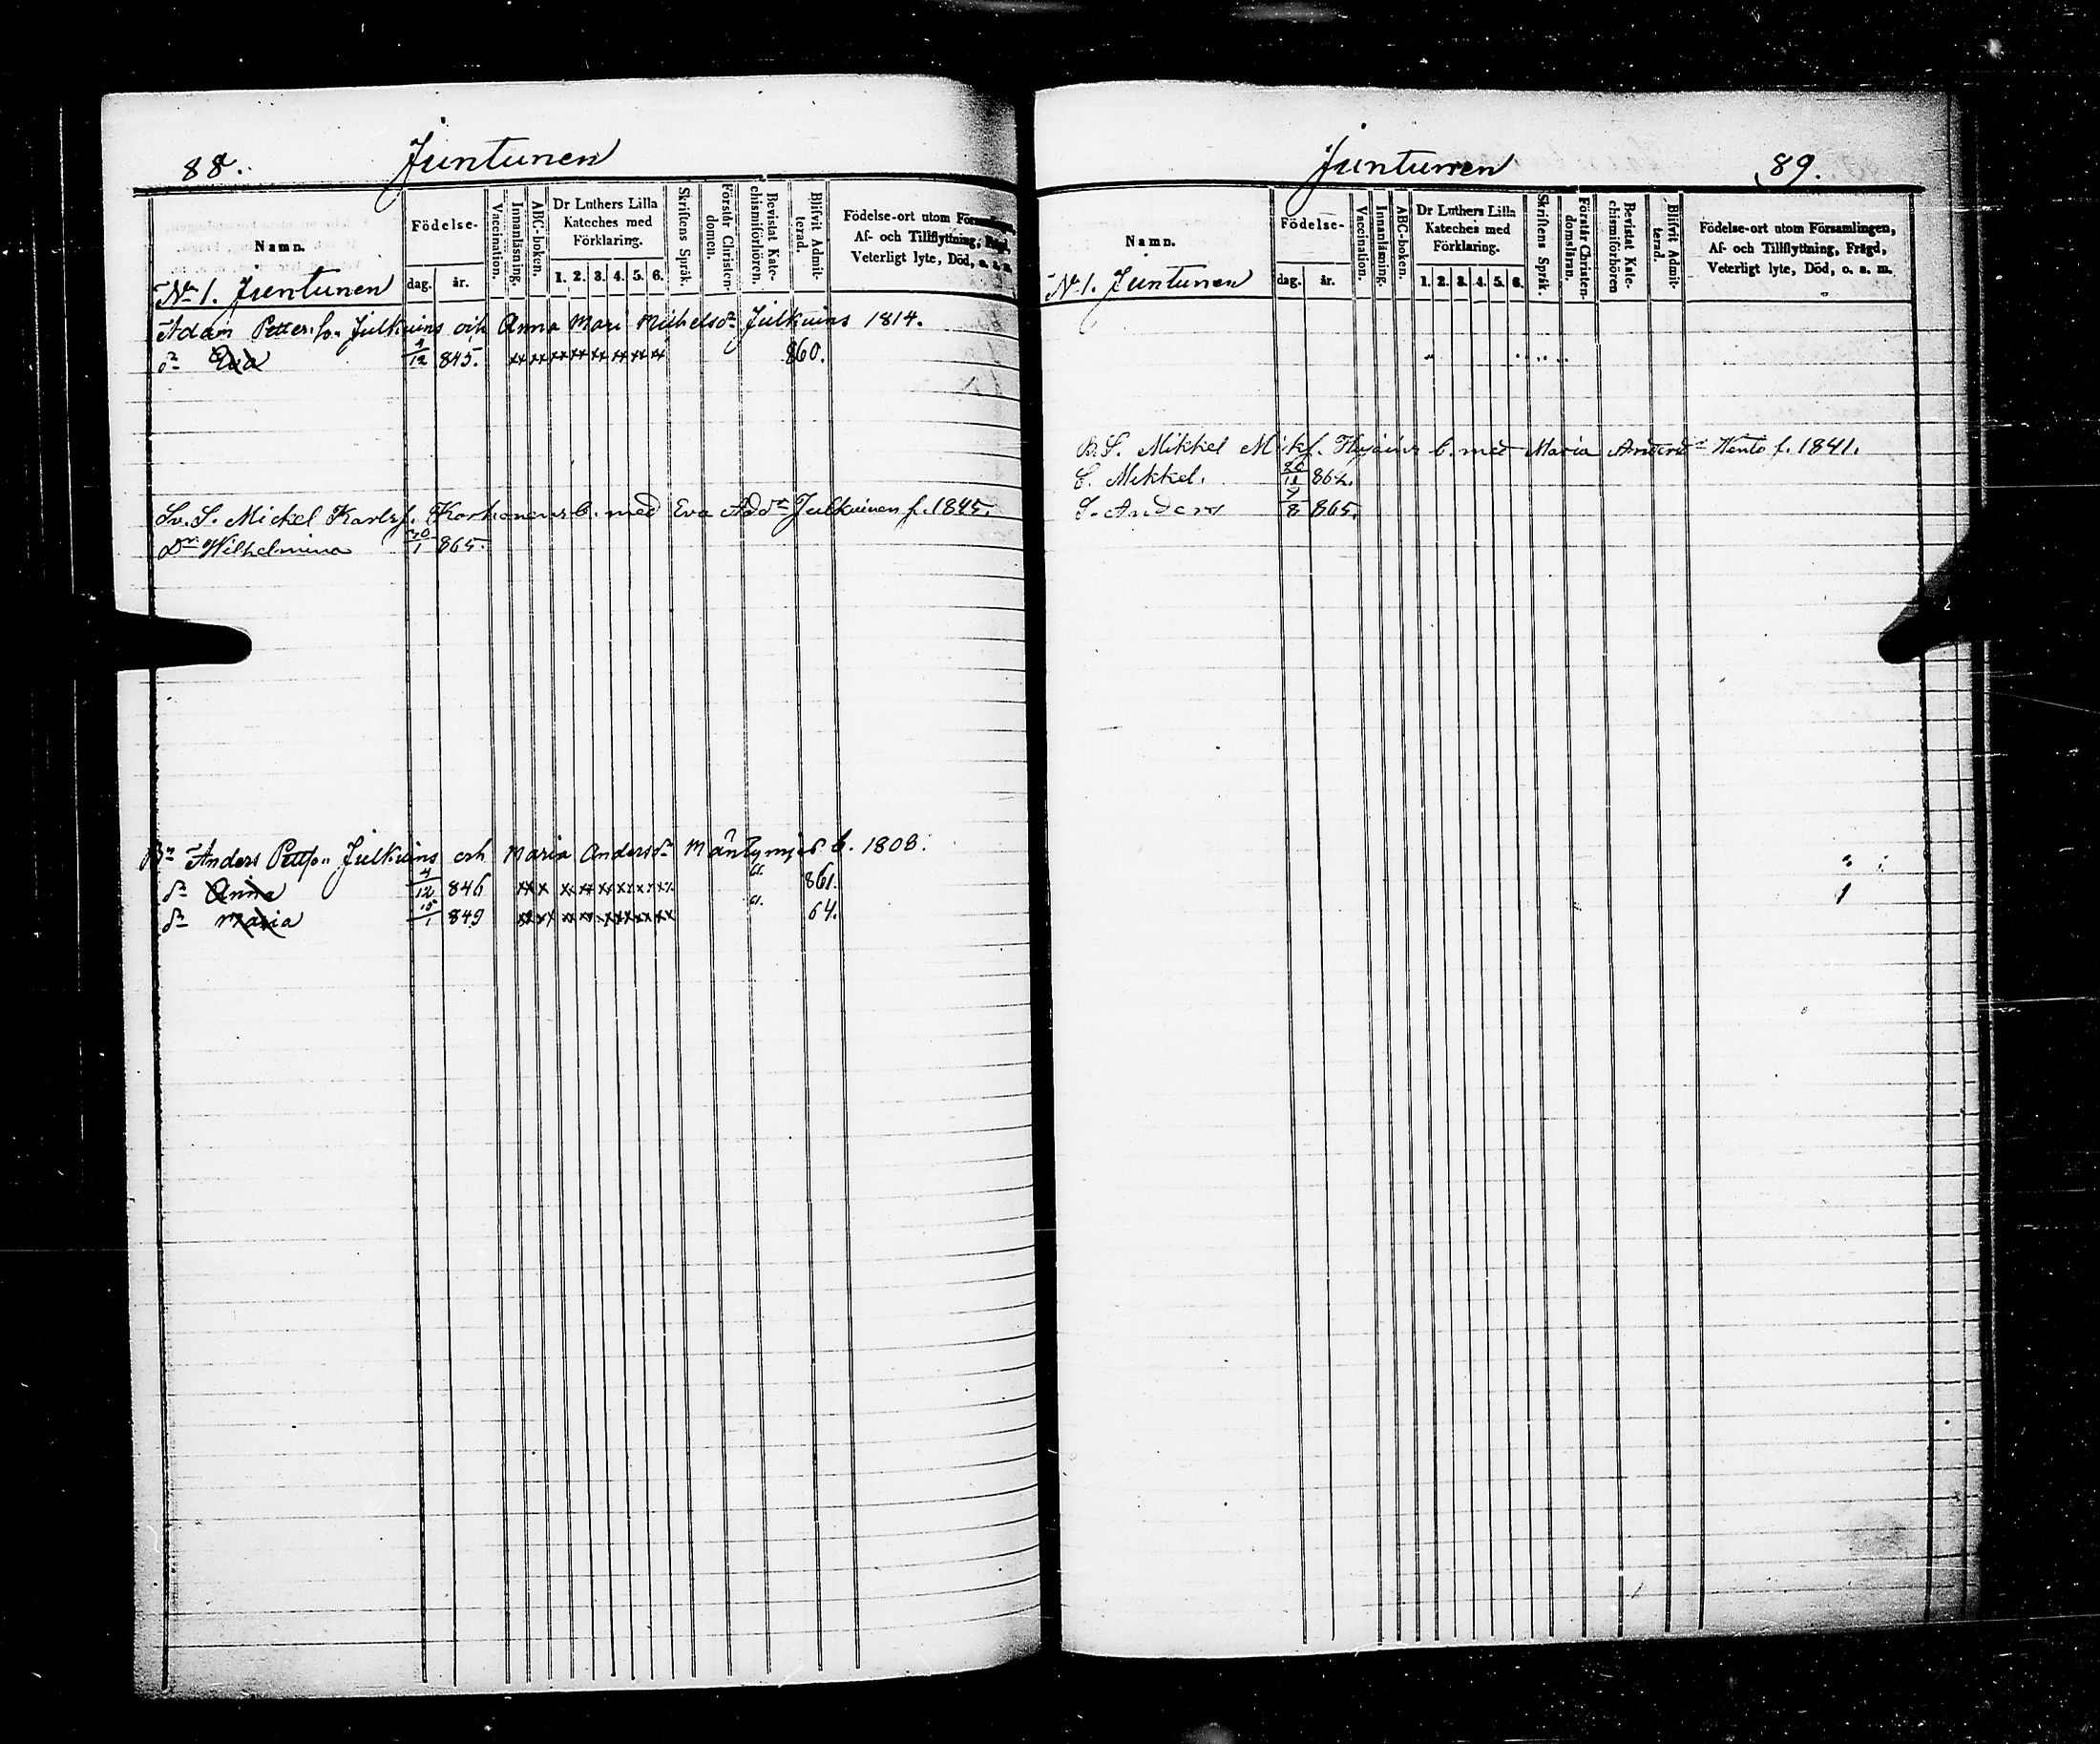 88. Juntunen
Namn.
Födelse-
dag. år.
Vaccination.
Innanläsning.
ABC-boken.
Dr Luthers Lilla Kateches med Förklaring.
1. 2. 3. 4. 5. 6.
Skriftens Språk.
Förstår Christen-domen.
Bevistat Kate-chismiförhören.
Blifvit Admit-terad.
Födelse-ort utom Församlingen,
Af- och Tillflyttning, Frägd,
Veterligt lyte, Död, o. a. m.
No 1. Juntunen
Adam Petters so. Julkuins och Anna Mari Michelsdr Julkuins 1814.
dr Eva 1/12 845. xx xx xx xx xx xx xx xx 860.
Sv. S. Mickel Karlsf. Korhonens b. med Eva Addr Julkuinen f. 1845.
Dr Wilhelmina 20/1 865.
Br Anders Pettso. Julkuins och Maria Andersdr b. 1808.
dr Anna 4/12 846 xx x xx xx xx xx xx xx a. 861.
dr Maria 15/1 849 xx xx xx xx xx xx xx xx a. 64.
Juntunen 89.
Namn.
Födelse-
dag. år.
Vaccination.
Innanläsning.
ABC-boken.
Dr Luthers Lilla Kateches med Förklaring.
1. 2. 3. 4. 5. 6.
Skriftens Språk.
Förstår Christen-domsläran.
Bevistat Kate-chismiförhören
Blifvit Admit-terad.
Födelse-ort utom Församlingen,
Af- och Tillflyttning, Frägd,
Veterligt lyte, Död, o. a. m.
No 1. Juntunen
B. S. Mikkel Mikf. b. med Maria Andersdr Wento f. 1841.
S. Mikkel. 20/11 862.
S. Anders 9/8 865.